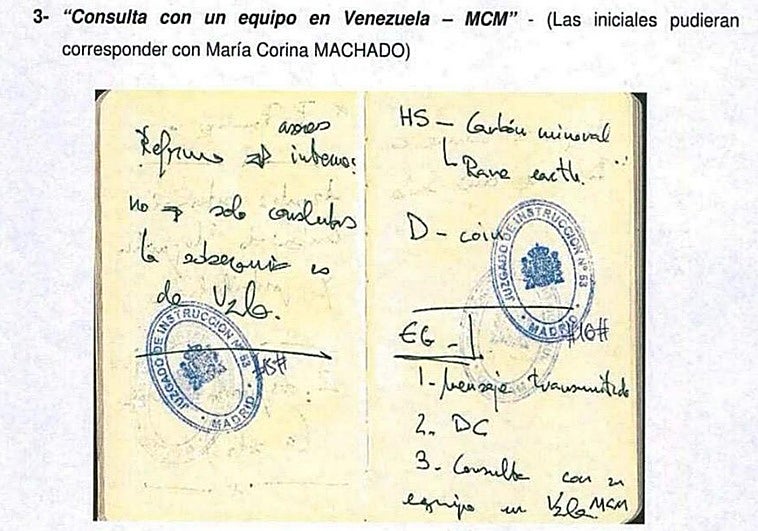 3- “Consulta con un equipo en Venezuela – MCM” - (Las iniciales pudieran
corresponder con María Corina MACHADO)
asores
interno:
no → solo consultas
la
es
de Vzla.
JUZGADO DE INSTRUCCION Nº 53
MADRID
#15#
HS – Carbón mineral
Rare earth.
D – coin
JUZGADO DE INSTRUCCION Nº 53
MADRID
#16#
EG –
1- mensaje transmitido
2. DC
3- Consulta con un
equipo en Vzla. MCM